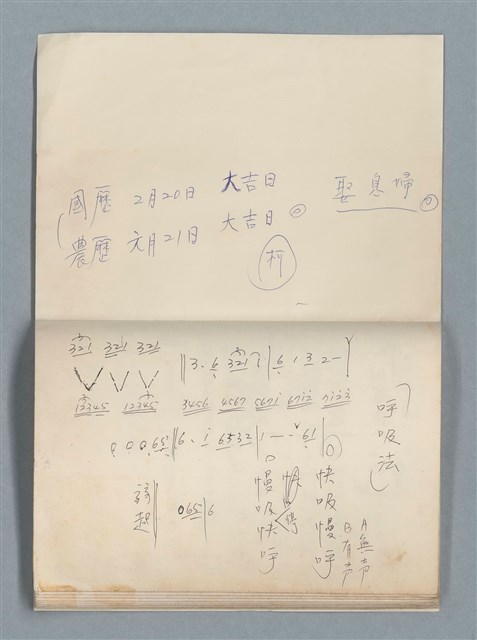 國歷 2月20日 大吉日
農歷 元月21日 大吉日
娶息婦
柯
321 321 321
3·6 321 | 6 1 3 2 —
12345 12345 3456 4567 5671 6712 7123
0 0 0 65 | 6· i 6532 | 1 — · 61
065 | 6
呼吸法
快吸慢呼
慢吸快呼
A無声
B有声